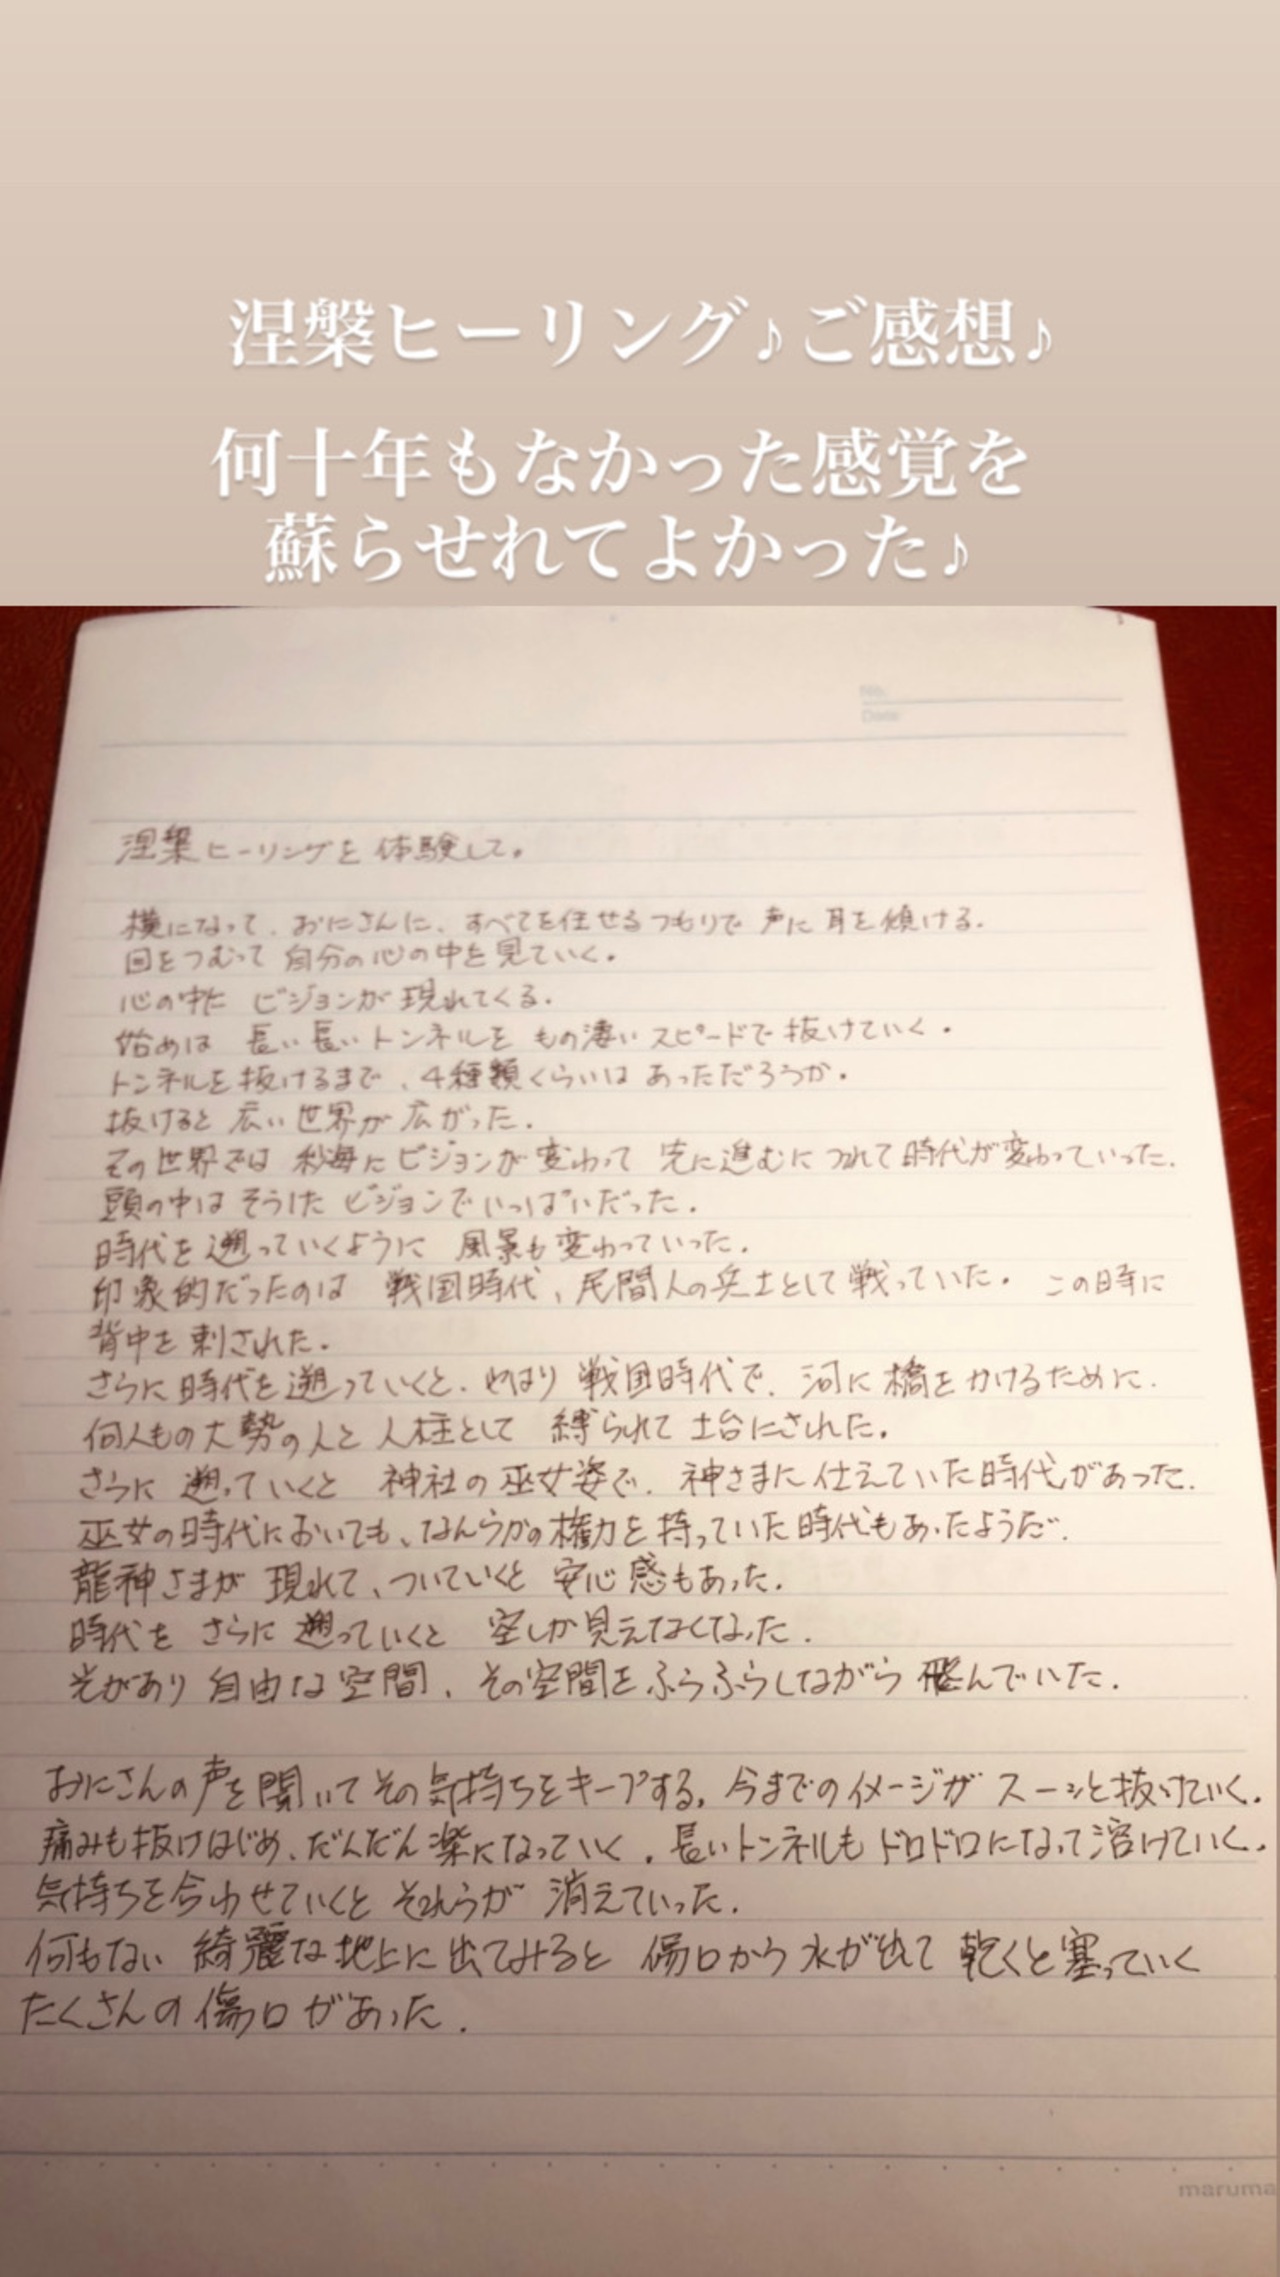 涅槃ヒーリング♪ご感想♪
何十年もなかった感覚を
蘇らせれてよかった♪
No.
Date
涅槃ヒーリングを体験して。
横になって、おにさんに、すべてを任せるつもりで声に耳を傾ける。
目をつむって自分の心の中を見ていく。
心の中に ビジョンが現れてくる。
始めは 長い長いトンネルを もの凄いスピードで抜けていく。
トンネルを抜けるまで、4種類くらいはあっただろうか。
抜けると広い世界が広がった。
その世界では 秒毎にビジョンが変わって 先に進むにつれて時代が変わっていった。
頭の中はそうした ビジョンでいっぱいだった。
時代を遡っていくように 風景も変わっていった。
印象的だったのは 戦国時代、民間人の兵士として戦っていた。 この時に
背中を刺された。
さらに時代を遡っていくと、やはり戦国時代で、河に橋をかけるために、
何人もの大勢の人と人柱として 縛られて土台にされた。
さらに 遡っていくと 神社の巫女姿で、神さまに仕えていた時代があった。
巫女の時代においても、なんらかの権力を持っていた時代もあったようだ。
龍神さまが現れて、ついていくと 安心感もあった。
時代を さらに 遡っていくと 空しか見えなくなった。
光があり 自由な空間、その空間をふらふらしながら飛んでいた。
おにさんの声を聞いてその気持ちをキープする。今までのイメージがスーッと抜けていく。
痛みも抜けはじめ、だんだん楽になっていく。長いトンネルもドロドロになって溶けていく。
気持ちを合わせていくと それらが 消えていった。
何もない 綺麗な地上に出てみると 傷口から水が出て 乾くと塞っていく
たくさんの傷口があった。
maruma